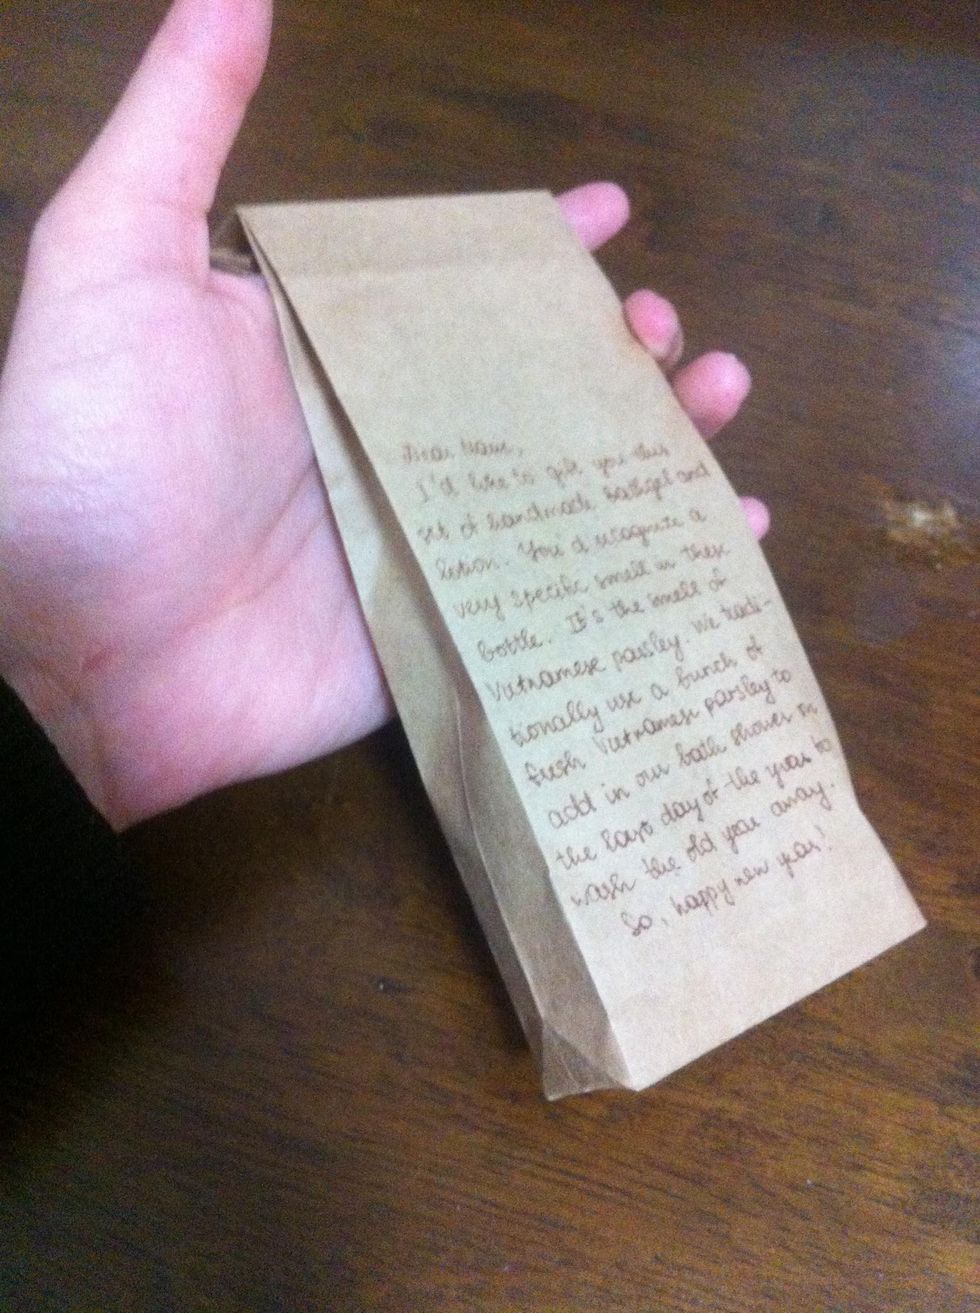 Dear Nam,
I'd like to gift you this
set of handmade bathgel and
lotion. You'd recognite a
very specific smell in these
bottle. It's the smell of
Vietnamese parsley. We tradi-
tionally use a bunch of
fresh Vietnamese parsley to
add in our bath shower in
the last day of the year to
wash the old year away.
So, happy new year!